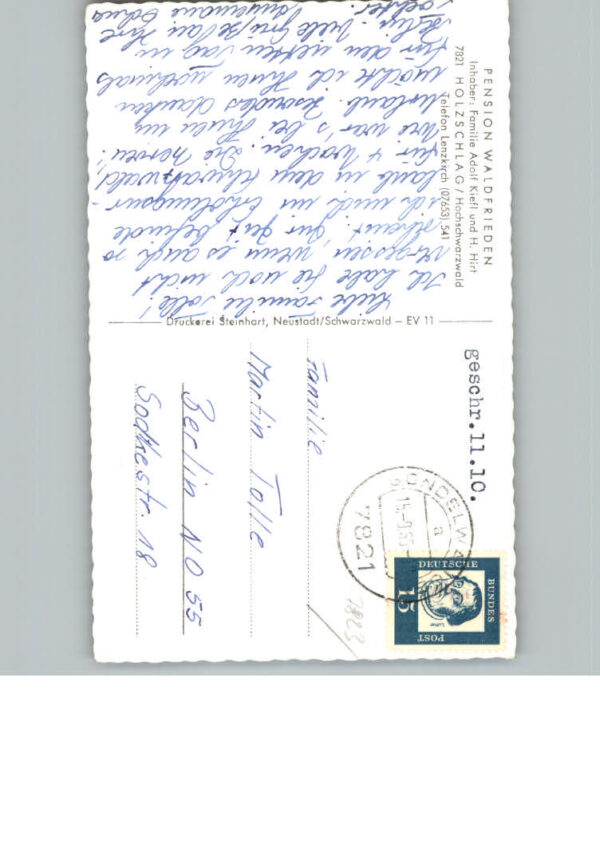 PENSION WALDFRIEDEN
Inhaber: Familie Adolf Kiefl und H. Hirt
7821 HOLZSCHLAG / Hochschwarzwald
Telefon Lenzkirch (07653) 541
Liebe Familie Tolle!
Ich habe Sie noch nicht
vergessen, wenn es auch so
scheint. Zur Zeit befinde
ich mich im Erholungsur-
laub in dem Schwarzwald,
für 4 Wochen. Die Nerven!
Wie war's bei Ihnen im
Urlaub. Besonders danken
möchte ich Ihnen nochmals
für den netten Tag in
Berlin. Viele Grüße an Ihre
Tochter.
Druckerei Steinhart, Neustadt/Schwarzwald – EV 11
geschr.11.10.
Familie
Martin Tolle
Berlin NO 55
Sodtkestr. 18
7821
a
DEUTSCHE
BUNDES
POST
15
Luther